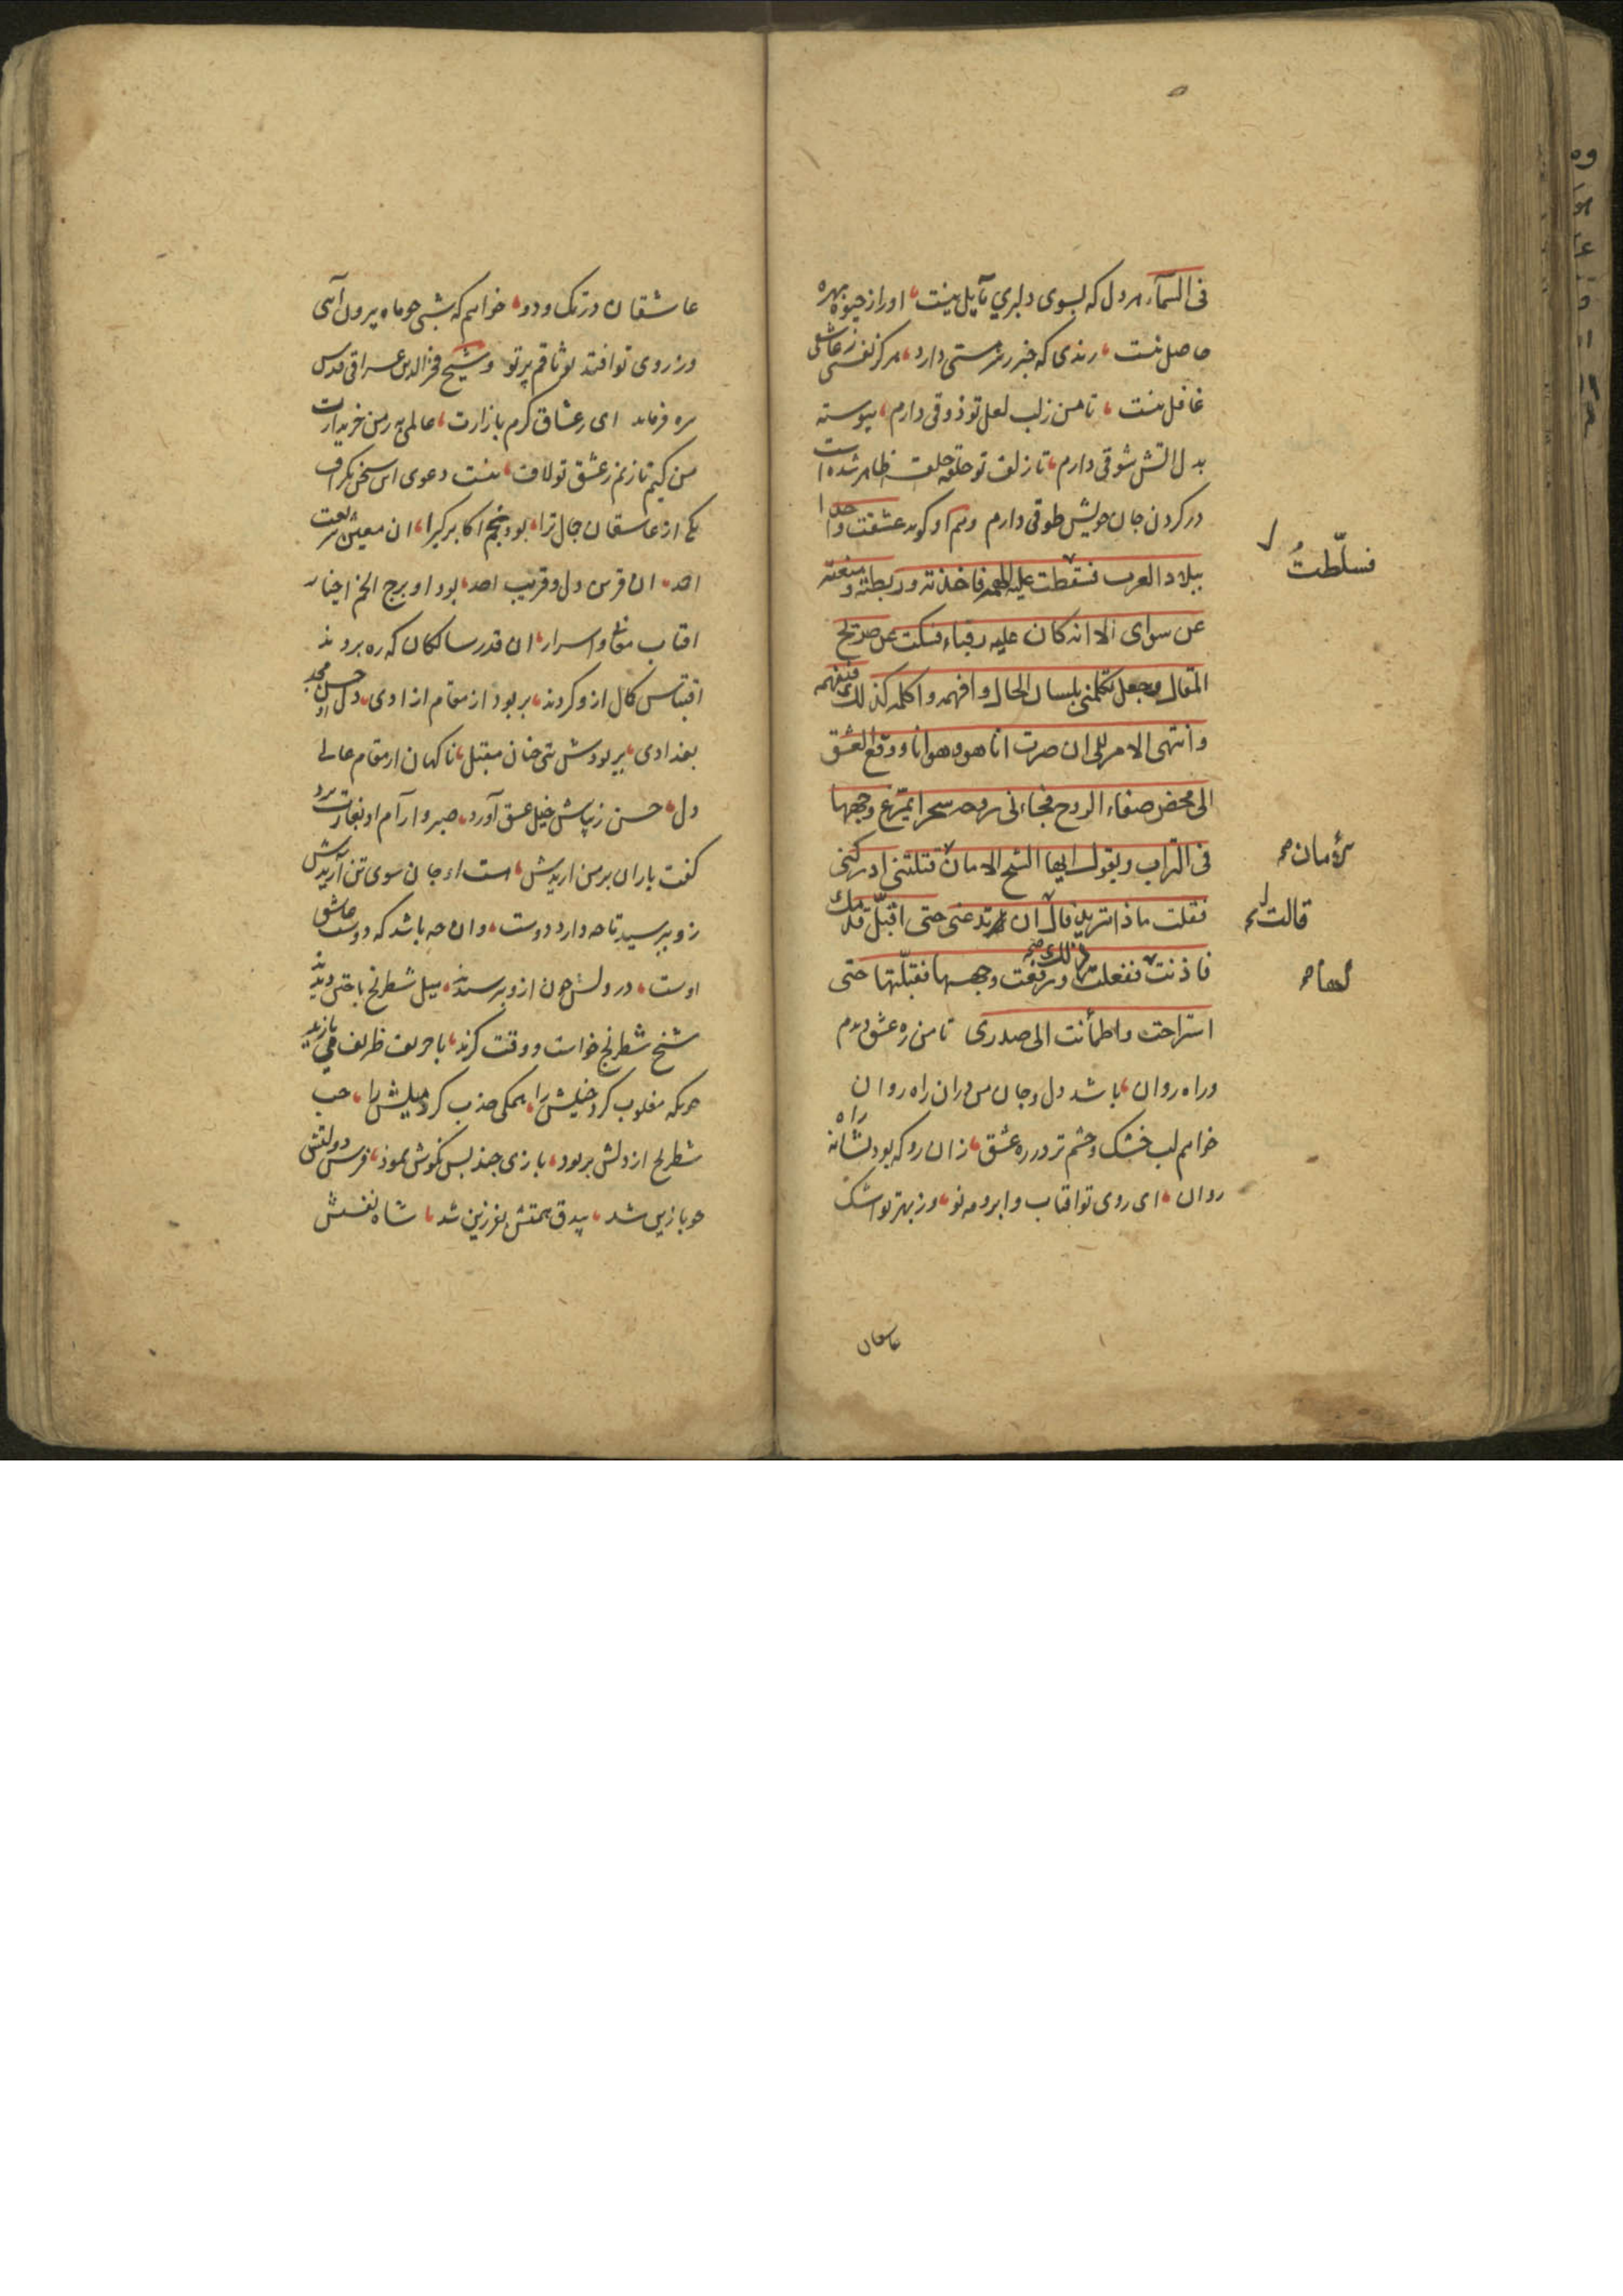 فی السمآء هر دل که بسوی دلبری مآیل نیست اورا ز حیوة بهره
حاصل نیست رندی که خبر ز سر مستی دارد هرکز نفسی ز عاشقی
غافل نیست تا من ز لب لعل تو ذوقی دارم پیوسته
بدل اتش شوقی دارم تا زلف تو حلقه حلقه ظاهر شده است
در کردن جان خویش طوقی دارم وهم او کوید عشقت واحدا
ببلاد العرب فسقطت علیه الهمة فاخذته وربطته ومنعته
عن سوای الا انه کان علیه رقباء فسکت عن صریح
المقال وجعل یکلمنی بلسان الحال وافهمه واکلمه کذلک فیفهمه
وانتهی الامر الی ان صرت انا هو وهو انا ووقع العشق
الی محض صفاء الروح فجاءنی روحه سحرا یمرّغ وجهها
فی التراب ویقول ایها الشیخ الامان قتلتنی ادرکنی
فقلت ماذا ترید قال ان تدعنی حتی اقبّل قدمک
فاذنت ففعلت ذلک ورفعت وجهها فقبّلتها حتی
استراحت واطمأنت الی صدری تا من ره عشق دیدم
وراه روان باشد دل وجان من دران راه روان
خواهم لب خشک وچشم تر در ره عشق زان رو که بود نشانه راه
روان ای روی تو افتاب وابرو مه نو وز بهر تو اشک
فسلّطتُ
الأمان
قالت
لها
عاشقان
عاشقان در تک ودو خواهم که شبی چو ماه بیرون آیی
وز روی تو افتد بوثاقم پرتو وشیخ فخر الدین عراقی قدس
سره فرماید ای ز عشاق کرم بازارت عالمی به ز من خریدارت
من کیم تا زنم ز عشق تو لاف نیست دعوی این سخن بکزاف
یکی از عاشقان جمال ترا بود نجم اکابر کبرا ان معین شریعت
احمد ان قرین دل وقریب احد بود او برج الخم اخیار
افتاب معانی واسرار ان قدر سالکان که ره بردند
اقتباس کمال ازو کردند بربود از مقام ازادی دل او حسن مجد
بغدادی بربودش بتی چنان مقبل ناکهان از مقام عالی
دل حسن زیباش خیل عشق آورد صبر وآرام او بغارت برد
کفت یاران بر من اریدش هست او جان سوی تن آریدش
زو بپرسید تا چه دارد دوست وان چه باشد که دوست عاشق
اوست درویش چون ازو بپرسیدند میل شطرنج باختن دیدند
شیخ شطرنج خواست ووقت کزید با حریف ظریف می بازید
چونکه مغلوب کرد خیلش را همکی جذب کرد میلش را حب
شطرنج از دلش بربود بازی چند بس نکوش نمود فرس دولتش
چو با زین شد بیدق همتش بفرزین شد شاه نفسش